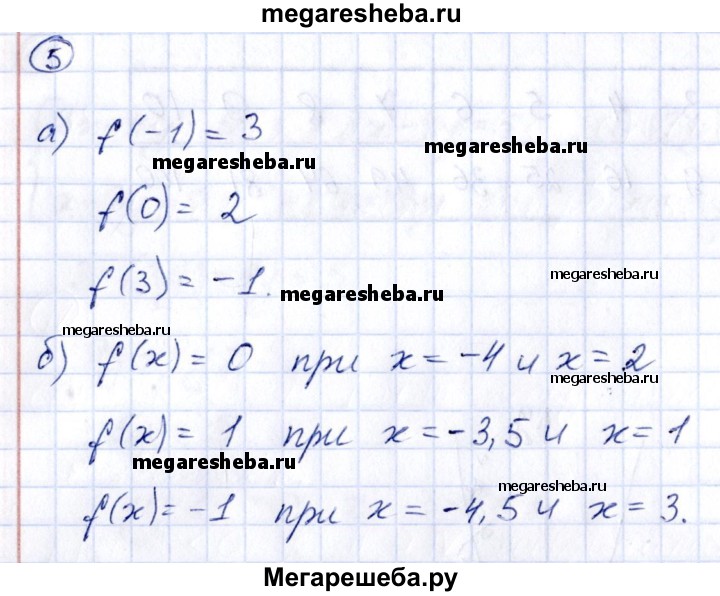 megaresheba.ru
5
а) f(-1) = 3
megaresheba.ru
megaresheba.ru
f(0) = 2
f(3) = -1.
megaresheba.ru
megaresheba.ru
megaresheba.ru
б) f(x) = 0 при x = -4 и x = 2
megaresheba.ru
f(x) = 1 при x = -3,5 и x = 1
megaresheba.ru
megaresheba.ru
f(x) = -1 при x = -4,5 и x = 3.
Мегарешеба.ру